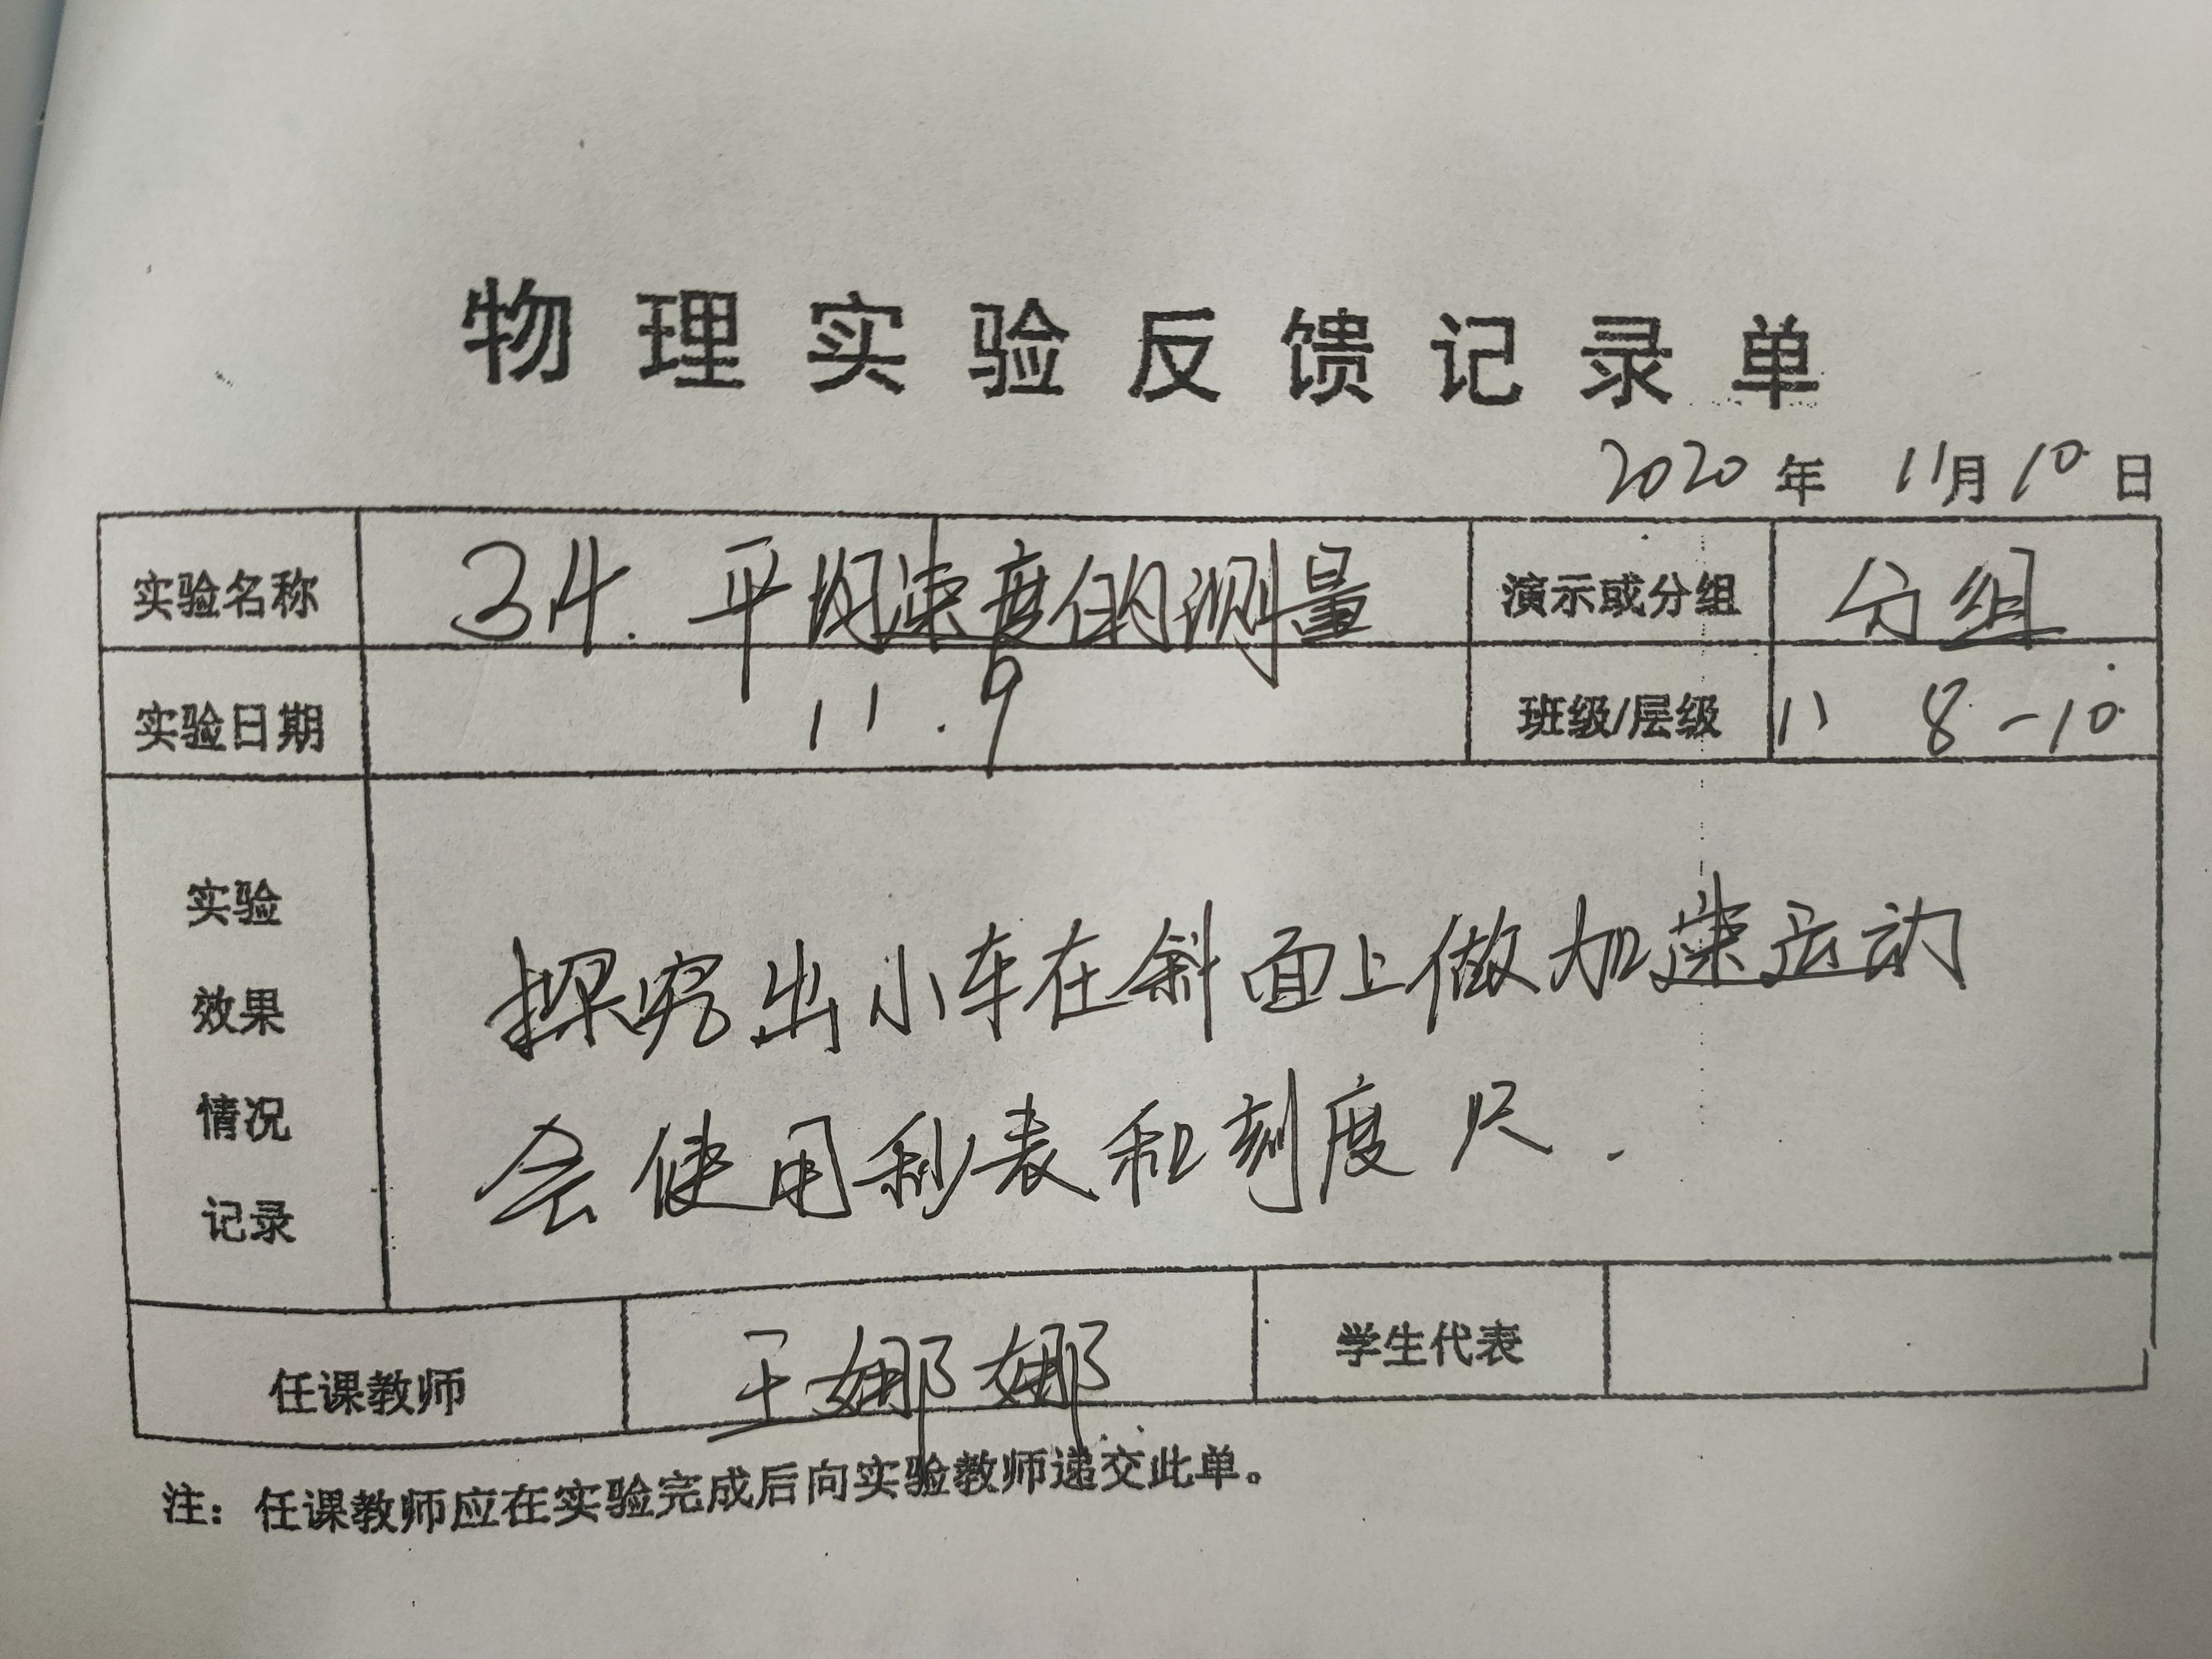 物理实验反馈记录单
2020年 11月10日
实验名称 34. 平均速度的测量 演示或分组 分组
实验日期 11.9 班级/层级 八 8-10
实验
效果
情况
记录
探究出小车在斜面上做加速运动
会使用秒表和刻度尺.
任课教师 王娜娜 学生代表
注：任课教师应在实验完成后向实验教师递交此单。